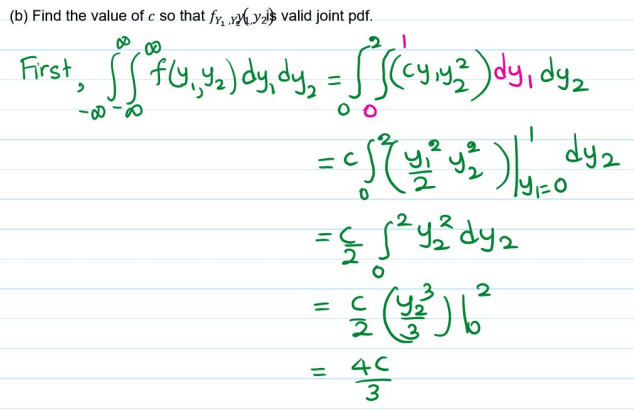 (b) Find the value of c so that f_{Y₁,Y₂}(y₁,y₂) is valid joint pdf.
First, ∫_{-∞}^{∞} ∫_{-∞}^{∞} f(y₁,y₂) dy₁ dy₂ = ∫_0^2 ∫_0^1 (c y₁ y₂²) dy₁ dy₂
= c ∫_0^2 (y₁²/2 y₂²) |_{y₁=0}^1 dy₂
= c/2 ∫_0^2 y₂² dy₂
= c/2 (y₂³/3) |_0^2
= 4c/3